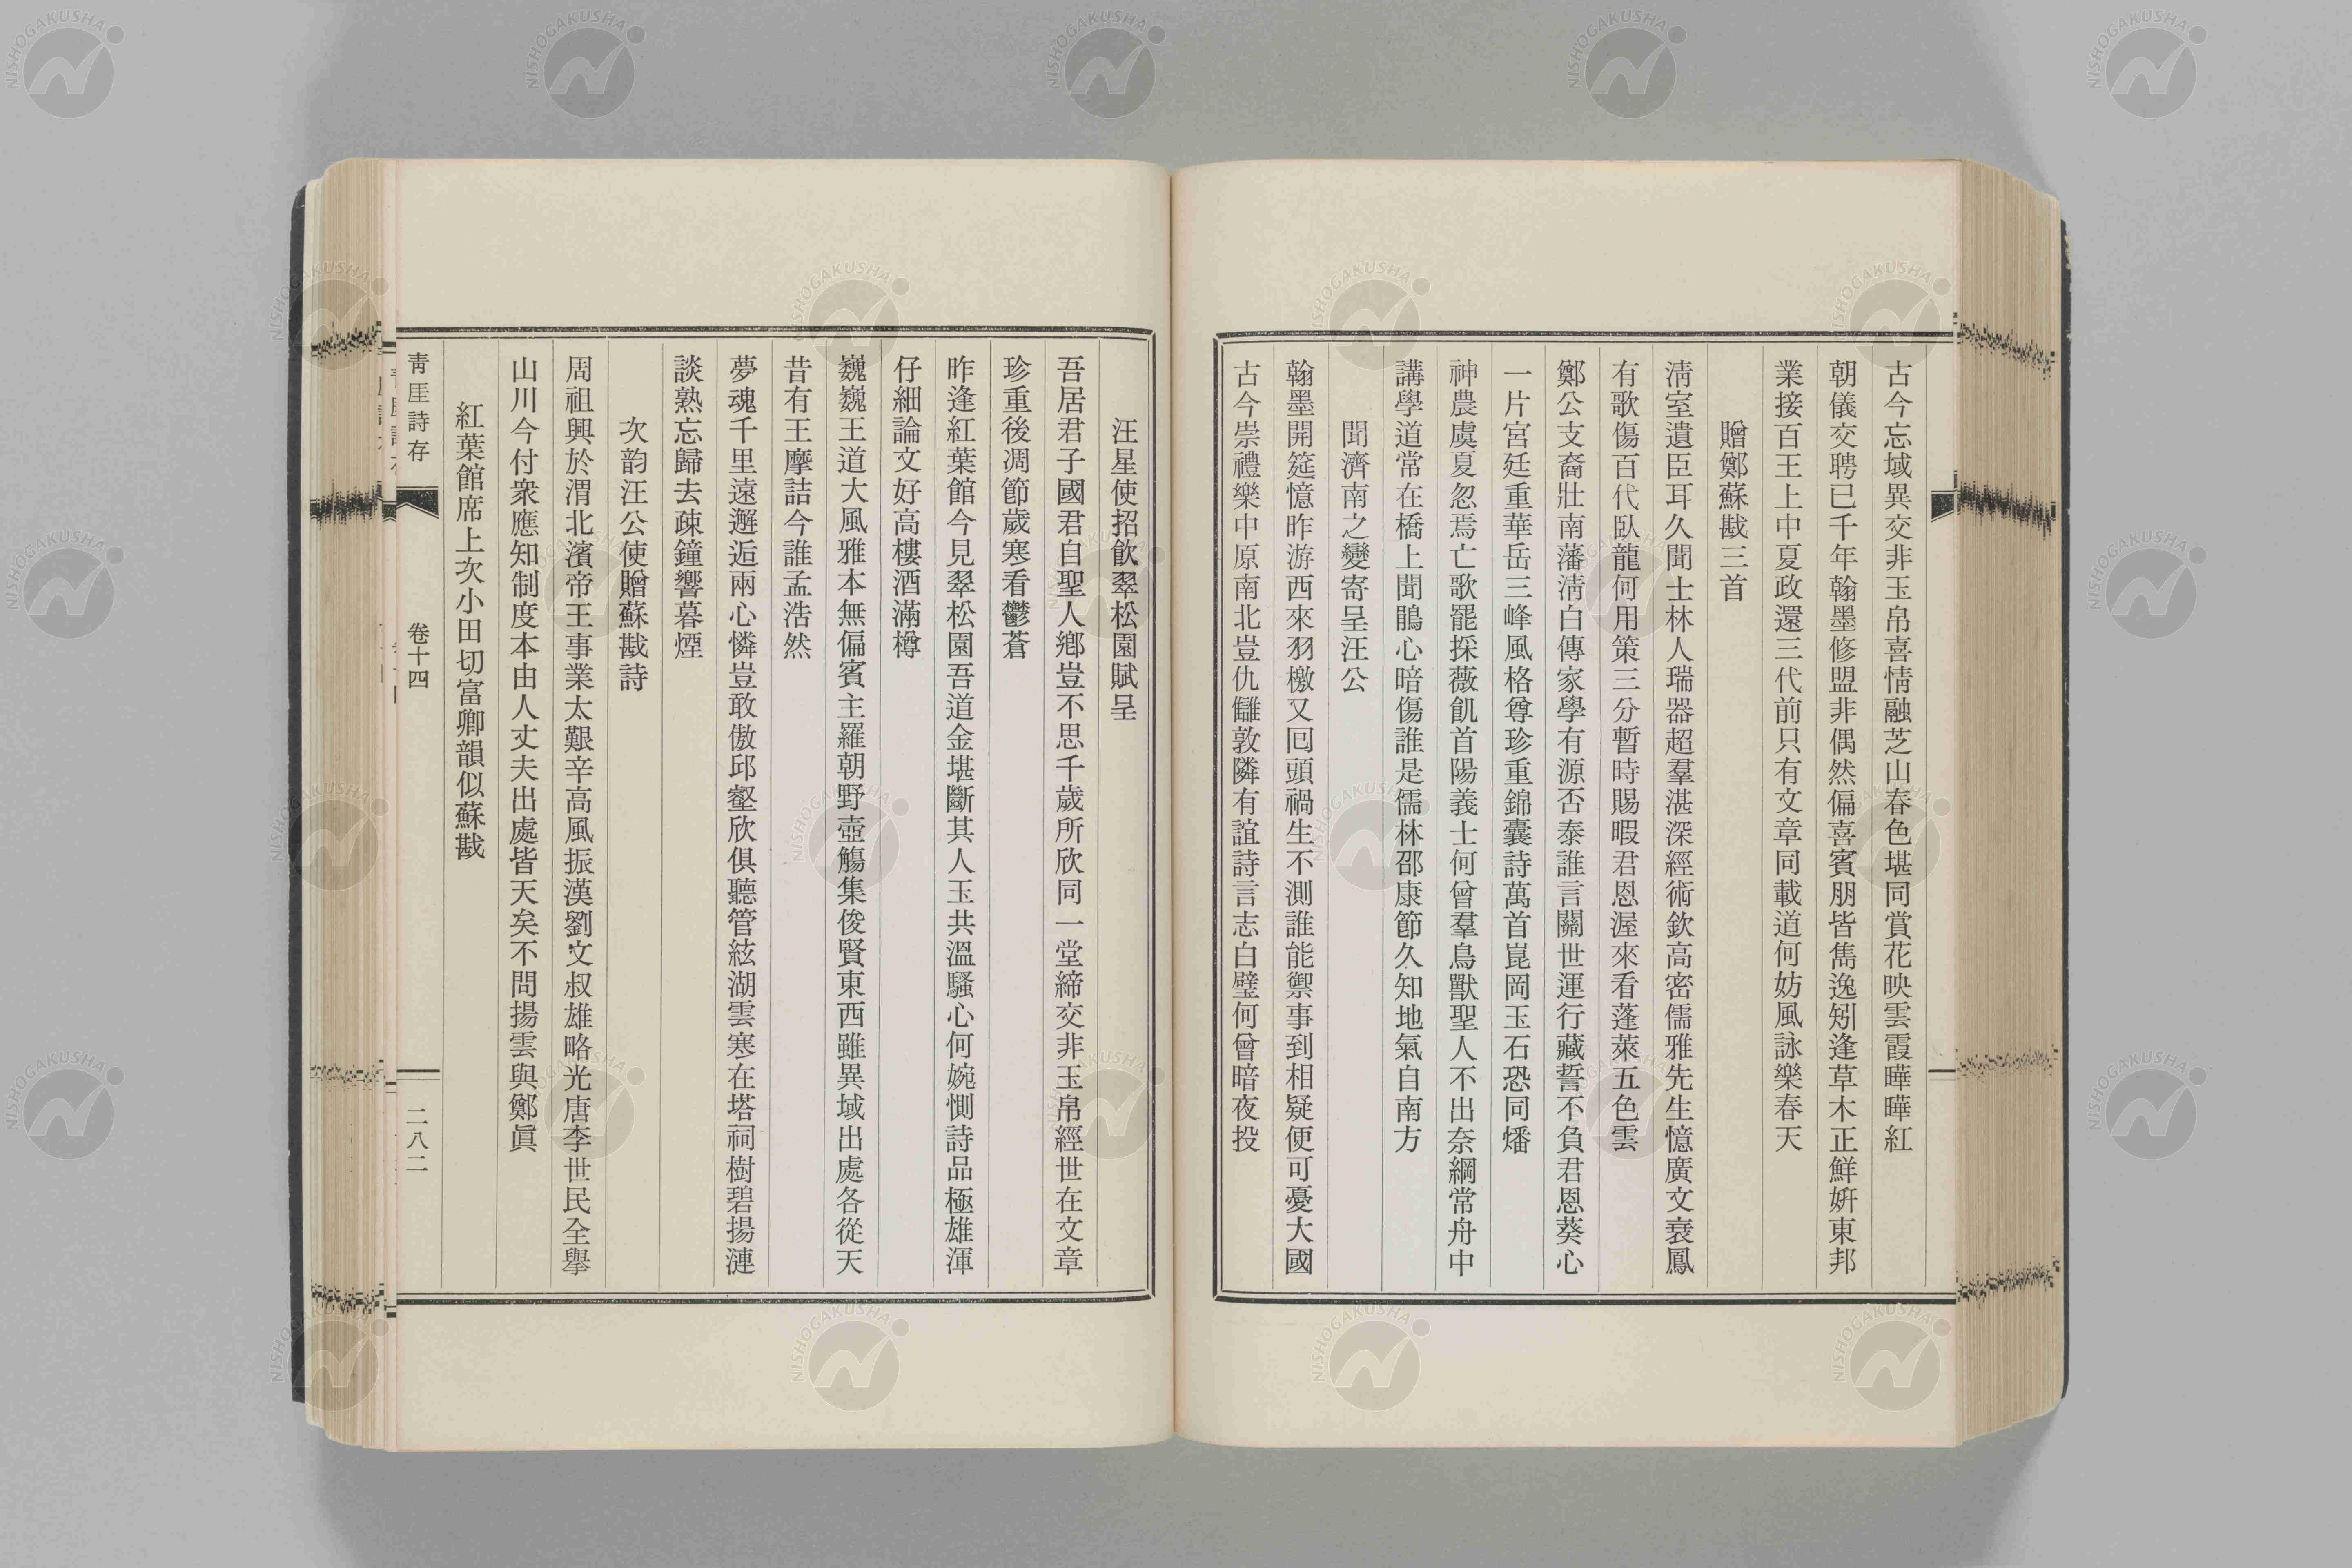 古今忘域異交非玉帛喜情融芝山春色堪同賞花映雲霞曄曄紅
朝儀交聘已千年翰墨修盟非偶然偏喜賓朋皆雋逸矧逢草木正鮮妍東邦
業接百王上中夏政還三代前只有文章同載道何妨風詠樂春天
贈鄭蘇戡三首
淸室遺臣耳久聞士林人瑞器超羣湛深經術欽高密儒雅先生憶廣文衰鳳
有歌傷百代臥龍何用策三分暫時賜暇君恩渥來看蓬萊五色雲
鄭公支裔壯南藩淸白傳家學有源否泰誰言關世運行藏誓不負君恩葵心
一片宮廷重華岳三峰風格尊珍重錦囊詩萬首崑岡玉石恐同燔
神農虞夏忽焉亡歌罷採薇飢首陽義士何曾羣鳥獸聖人不出奈綱常舟中
講學道常在橋上聞鵑心暗傷誰是儒林邵康節久知地氣自南方
聞濟南之變寄呈汪公
翰墨開筵憶昨游西來羽檄又回頭禍生不測誰能禦事到相疑便可憂大國
古今崇禮樂中原南北豈仇讎敦隣有誼詩言志白璧何曾暗夜投
汪星使招飮翠松園賦呈
吾居君子國君自聖人鄉豈不思千歲所欣同一堂締交非玉帛經世在文章
珍重後凋節歲寒看鬱蒼
昨逢紅葉館今見翠松園吾道金堪斷其人玉共溫騷心何婉惻詩品極雄渾
仔細論文好高樓酒滿樽
巍巍王道大風雅本無偏賓主羅朝野壺觴集俊賢東西雖異域出處各從天
昔有王摩詰今誰孟浩然
夢魂千里遠邂逅兩心憐豈敢傲邱壑欣俱聽管絃湖雲寒在塔祠樹碧揚漣
談熟忘歸去疎鐘響暮煙
次韵汪公使贈蘇戡詩
周祖興於渭北濱帝王事業太艱辛高風振漢劉文叔雄略光唐李世民全擧
山川今付衆應知制度本由人丈夫出處皆天矣不問揚雲與鄭眞
紅葉館席上次小田切富卿韻似蘇戡
靑厓詩存
卷十四
二八二